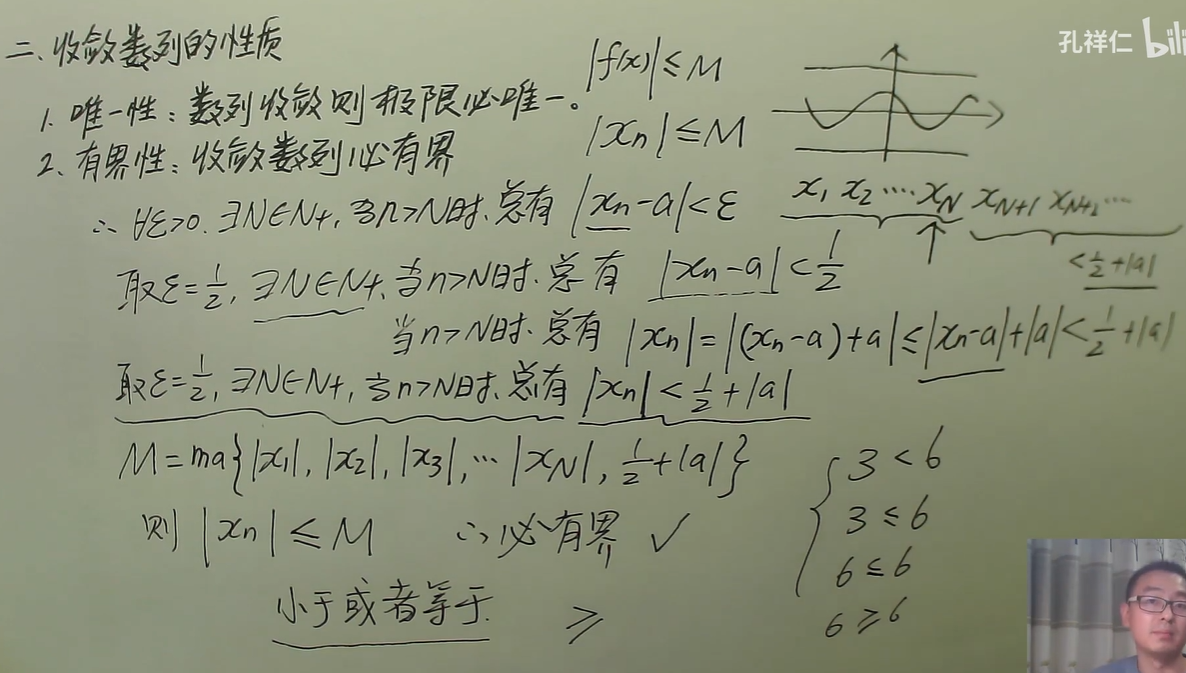 二、收敛数列的性质
1. 唯一性：数列收敛则极限必唯一。
2、有界性：收敛数列必有界
|f(x)|≤M
|xn|≤M
∴ ∀ε>0. ∃N∈N+, 当n>N时、总有 |xn-a|<ε
x1 x2 ···· xN xN+1 xN+2 ····
<1/2+|a|
取ε=1/2, ∃N∈N+, 当n>N时、总有 |xn-a|<1/2
当n>N时、总有 |xn|=|(xn-a)+a|≤|xn-a|+|a|<1/2+|a|
取ε=1/2, ∃N∈N+, 当n>N时、总有 |xn|<1/2+|a|
M=ma{|x1|, |x2|, |x3|, ··· |xN|, 1/2+|a|}
则 |xn|≤M ∴必有界 ✓
小于或者等于. ≥
3<6
3≤6
6≤6
6≥6
孔祥仁 bili